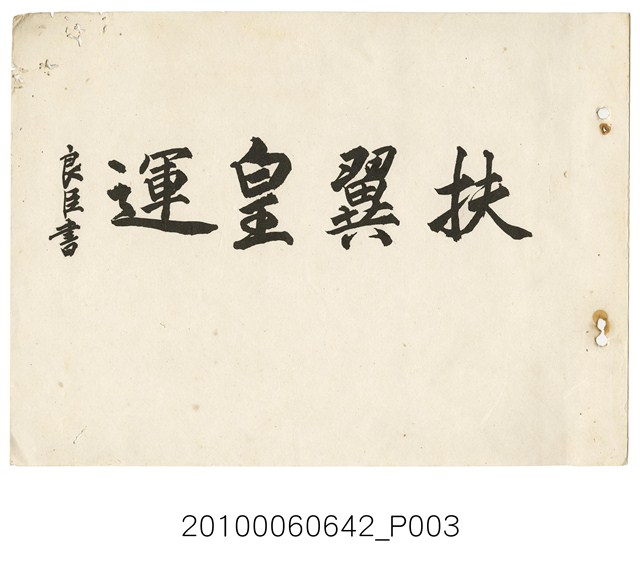 扶翼皇運
良臣書
20100060642_P003